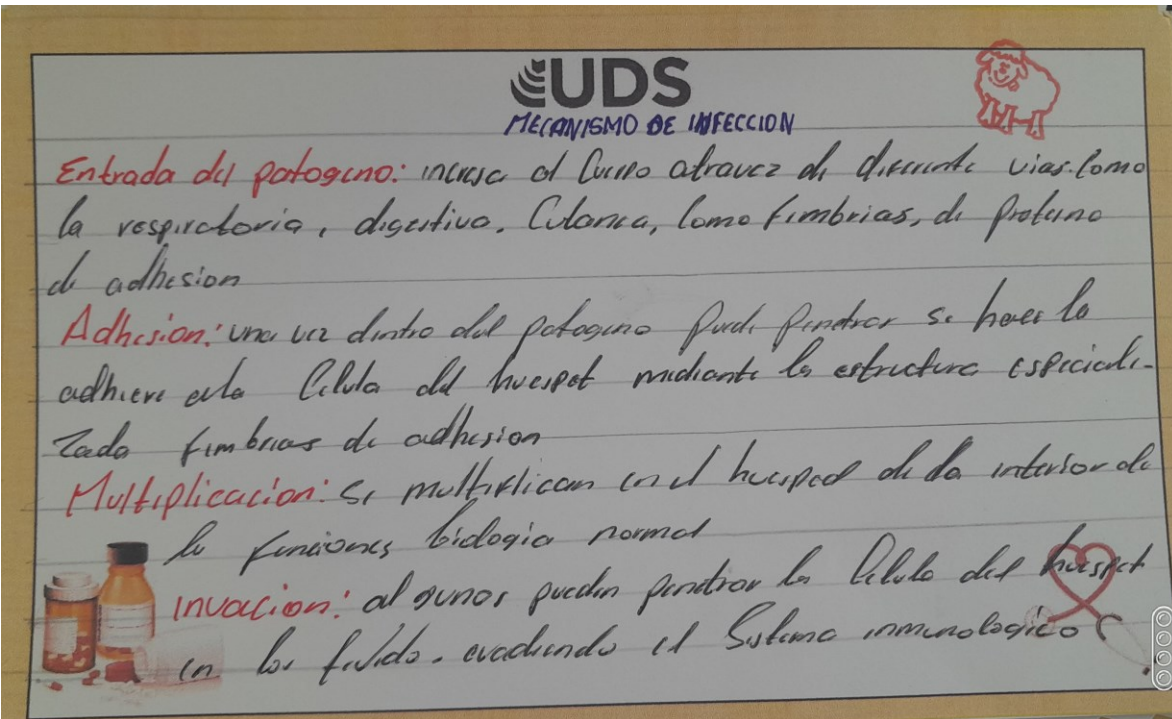 UDS
MECANISMO DE INFECCION
Entrada del patogeno: incresa al Cuerpo atravez de diferente vias. Como
la respiratoria, digestiva. Cutanea, Como fimbrias, de proteina
de adhesion
Adhesion: una vez dentro del patogeno puede penetrar se hacer la
adhiere a la Celula del huespet mediante la estructura especiali-
zada fimbrias de adhesion
Multiplicacion: Se multiplican en el huesped de la interior de
la funciones biologia normal
invacion: algunos pueden penetrar la Celula del huespet
en los fluido. evadiendo el Sistema inmunologico